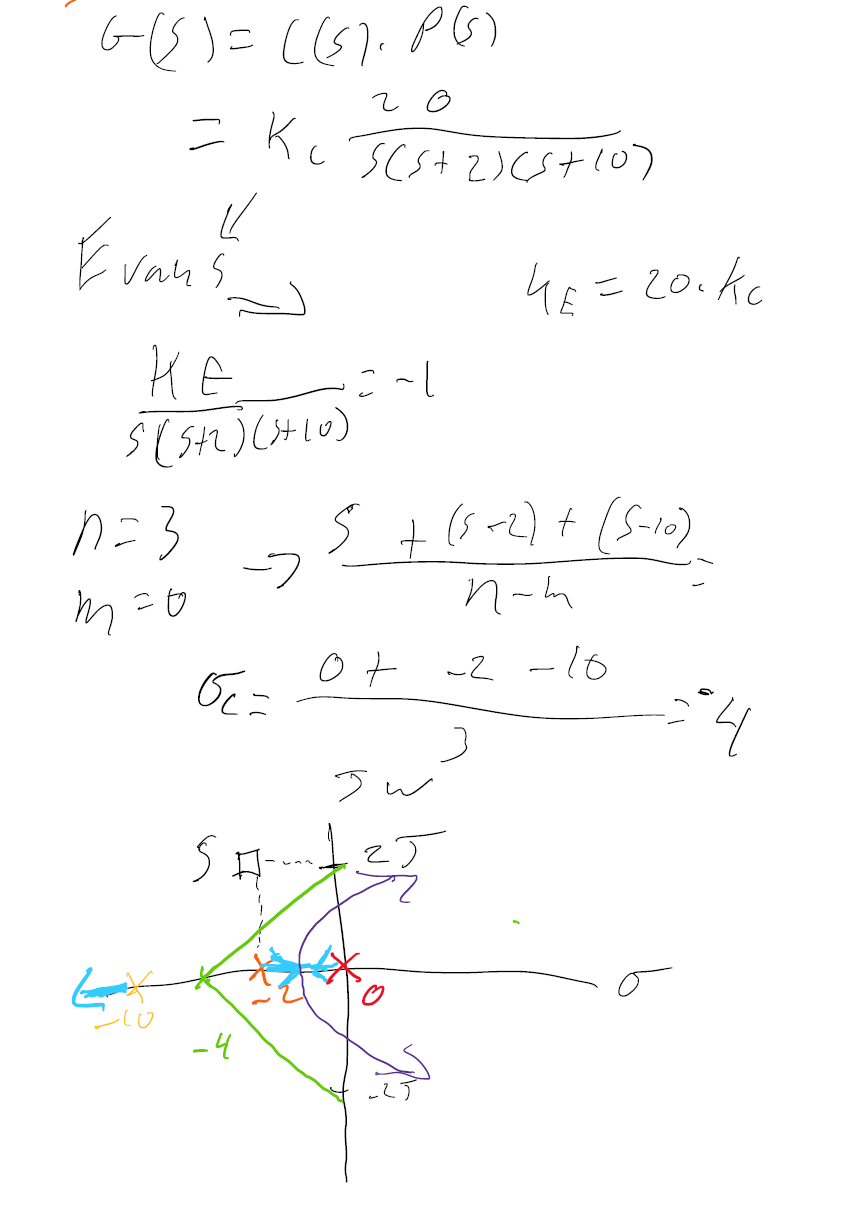 G(s) = C(s). P(s)
= Kc 20 / s(s+2)(s+10)
Evans
KE = 20.Kc
KE / s(s+2)(s+10) = -1
n = 3
m = 0
→ s + (s-2) + (s-10) / n-m =
σc = 0 + -2 -10 / 3 = -4
Jw
S
2J
-2
0
σ
-10
-4
-2J